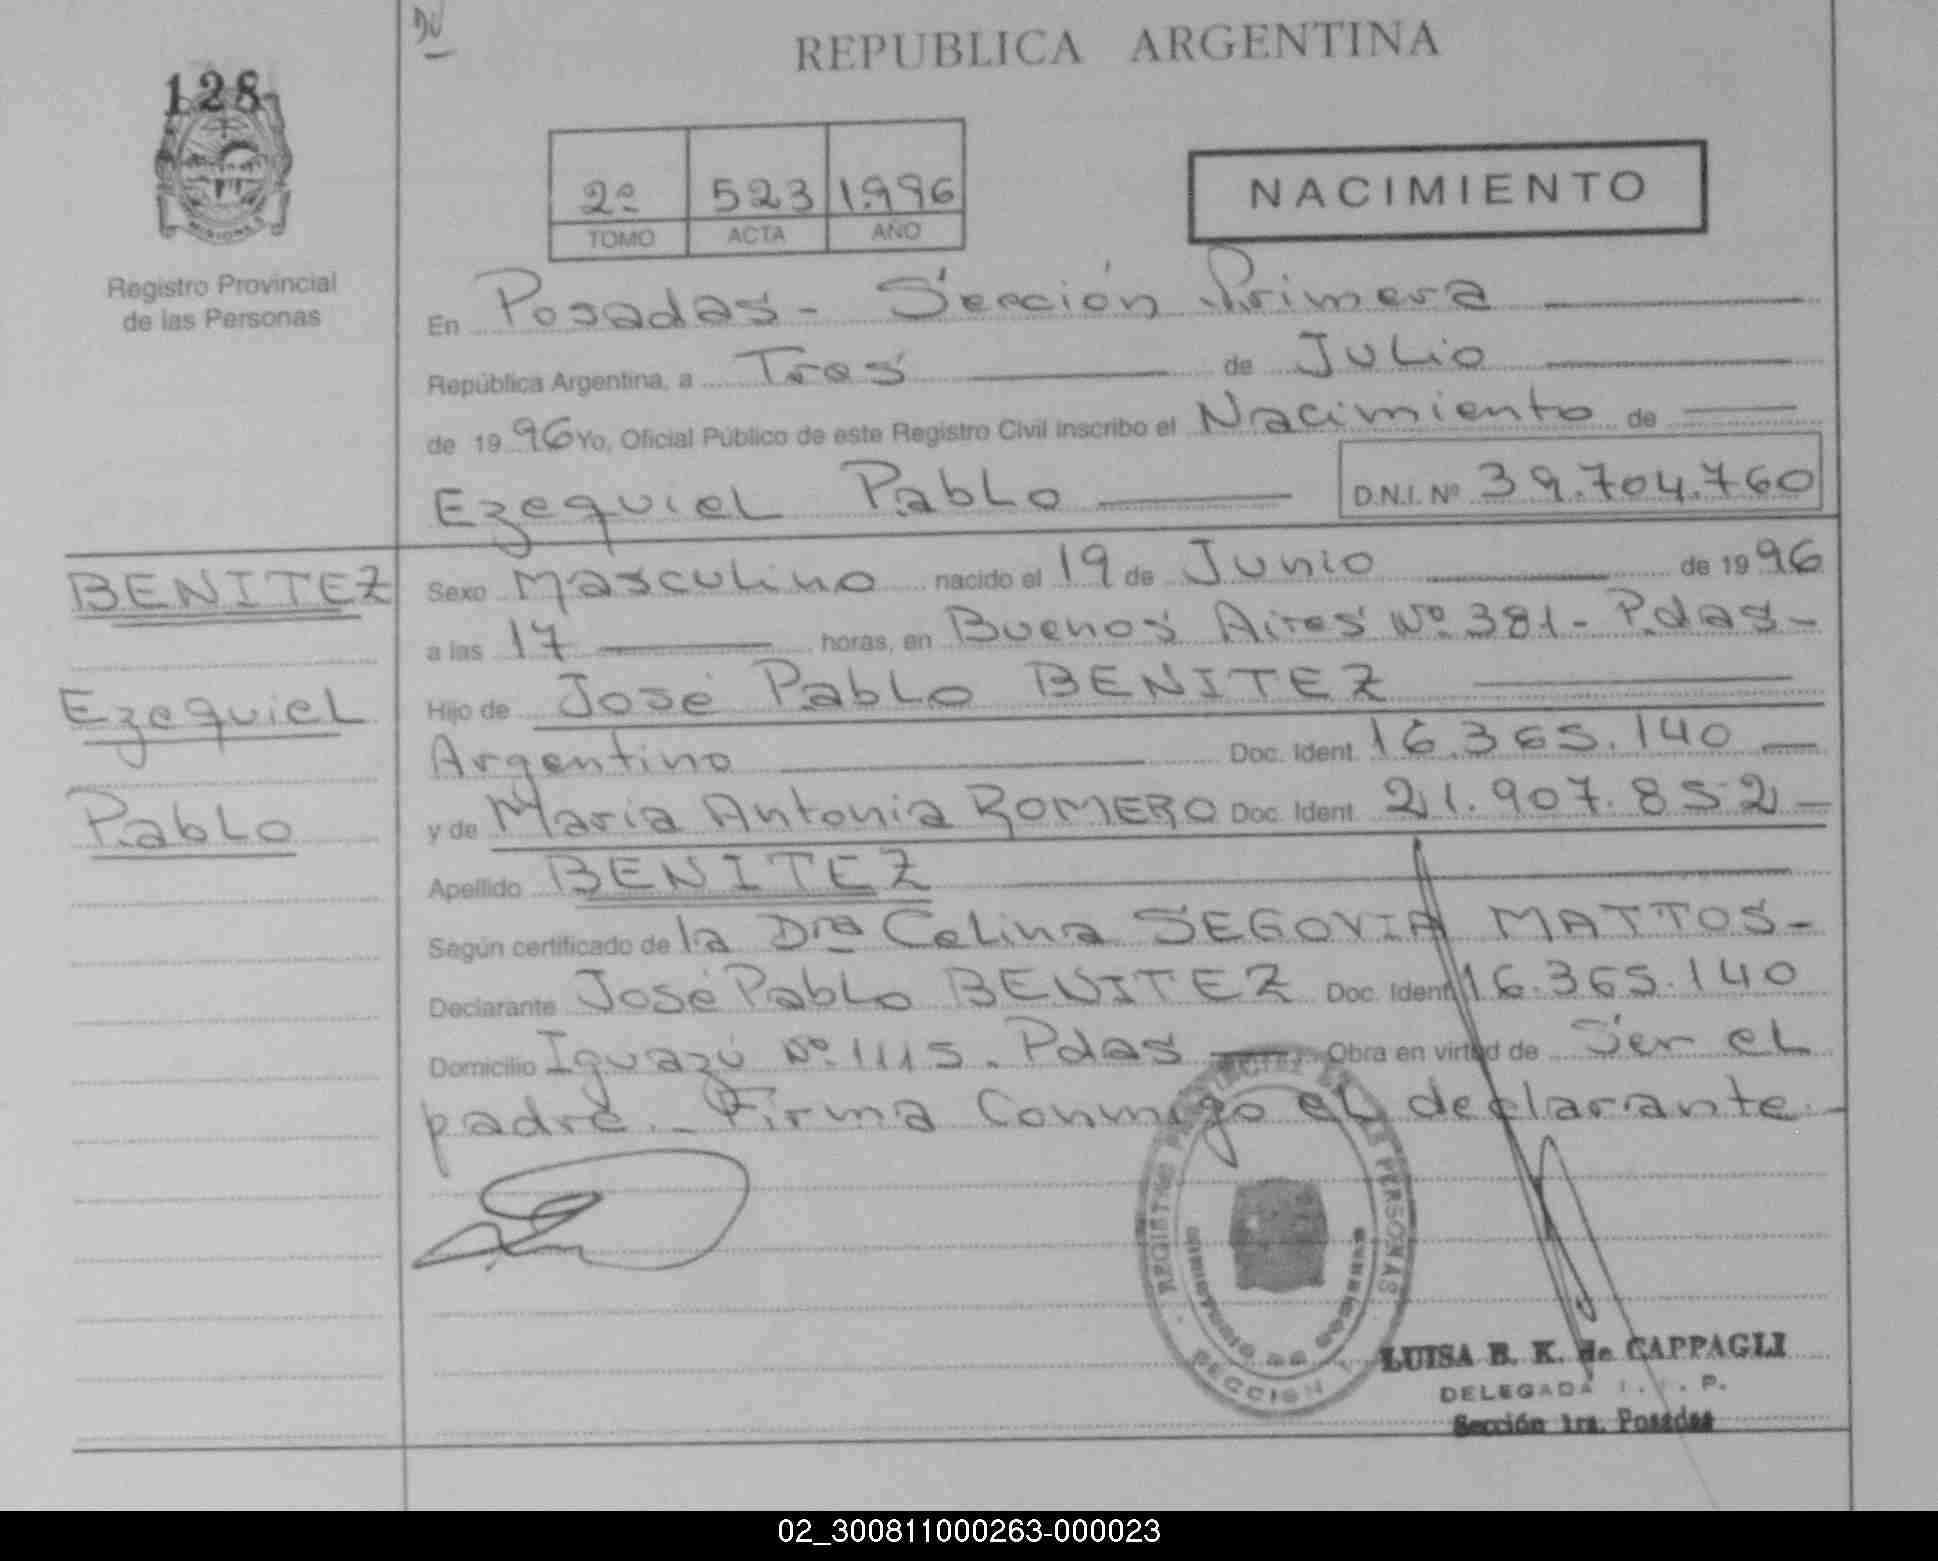 DU
REPUBLICA ARGENTINA
128
MISIONES
Registro Provincial
de las Personas
2º 523 1.996
TOMO ACTA AÑO
NACIMIENTO
En Posadas - Sección Primera
República Argentina, a Tres de Julio
de 1996 Yo, Oficial Público de este Registro Civil inscribo el Nacimiento de
Ezequiel Pablo D.N.I. Nº 39.704.760
BENITEZ
Ezequiel
Pablo
Sexo Masculino nacido el 19 de Junio de 1996
a las 17 horas, en Buenos Aires Nº 381 - Pdas -
Hijo de José Pablo BENITEZ
Argentino Doc. Ident. 16.365.140
y de María Antonia ROMERO Doc. Ident. 21.907.852
Apellido BENITEZ
Según certificado de la Dra Celina SEGOVIA MATTOS -
Declarante José Pablo BENITEZ Doc. Ident. 16.365.140
Domicilio Iguazú Nº 1115. Pdas Obra en virtud de Ser el
padre. - Firma Conmigo el declarante. -
REGISTRO PROVINCIAL DE LAS PERSONAS
SECCION 1
LUISA B. K. de CAPPAGLI
DELEGADA
Sección 1ra. Posadas
02_300811000263-000023